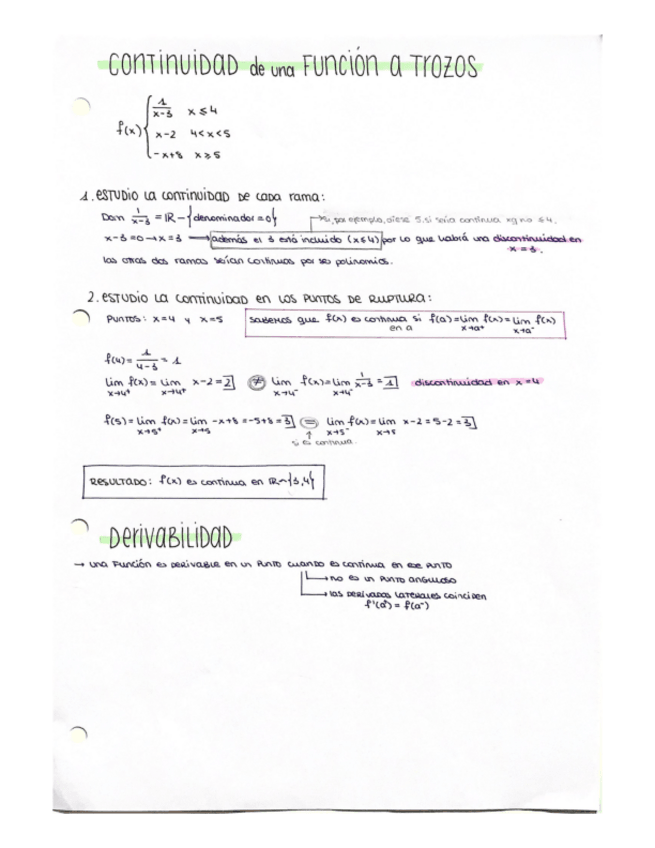 CONTINUIDAD de una FUNCIÓN A TROZOS
f(x) { 1/x-3 x ≤ 4
x-2 4<x<5
-x+8 x≥5
1. ESTUDIO LA CONTINUIDAD DE CADA rama:
Dom 1/x-3 = IR - {denominador = 0}
si, por ejemplo, diese 5, si sería continua xq no ≤ 4.
x-3=0 → x=3 → además el 3 está incluido (x≤4) por lo que habrá una discontinuidad en x=3.
las otras dos ramas serían continuas por ser polinomios.
2. ESTUDIO LA CONTINUIDAD EN LOS PUNTOS DE RUPTURA:
PUNTOS: x=4 y x=5
SABEMOS que f(x) es continua si f(a)=lim f(x)=lim f(x)
en a x→a⁺ x→a⁻
f(4)= 1/4-3 = 1
lim f(x)= lim x-2 = 2 ≠ lim f(x)= lim 1/x-3 = 1 discontinuidad en x=4
x→4⁺ x→4⁺ x→4⁻ x→4⁻
f(5)= lim f(x)= lim -x+8 = -5+8 = 3 = lim f(x)= lim x-2 = 5-2 = 3
x→5⁺ x→5 x→5⁻ x→5
si es continua.
RESULTADO: f(x) es continua en IR-{3,4}
DERIVABILIDAD
→ una Función es DERIVABLE en un PUNTO CUANDO es continua en ese PUNTO
→ no es un PUNTO ANGULOSO
→ las DERIVADAS LATERALES coinciden
f'(a⁺) = f(a⁻)